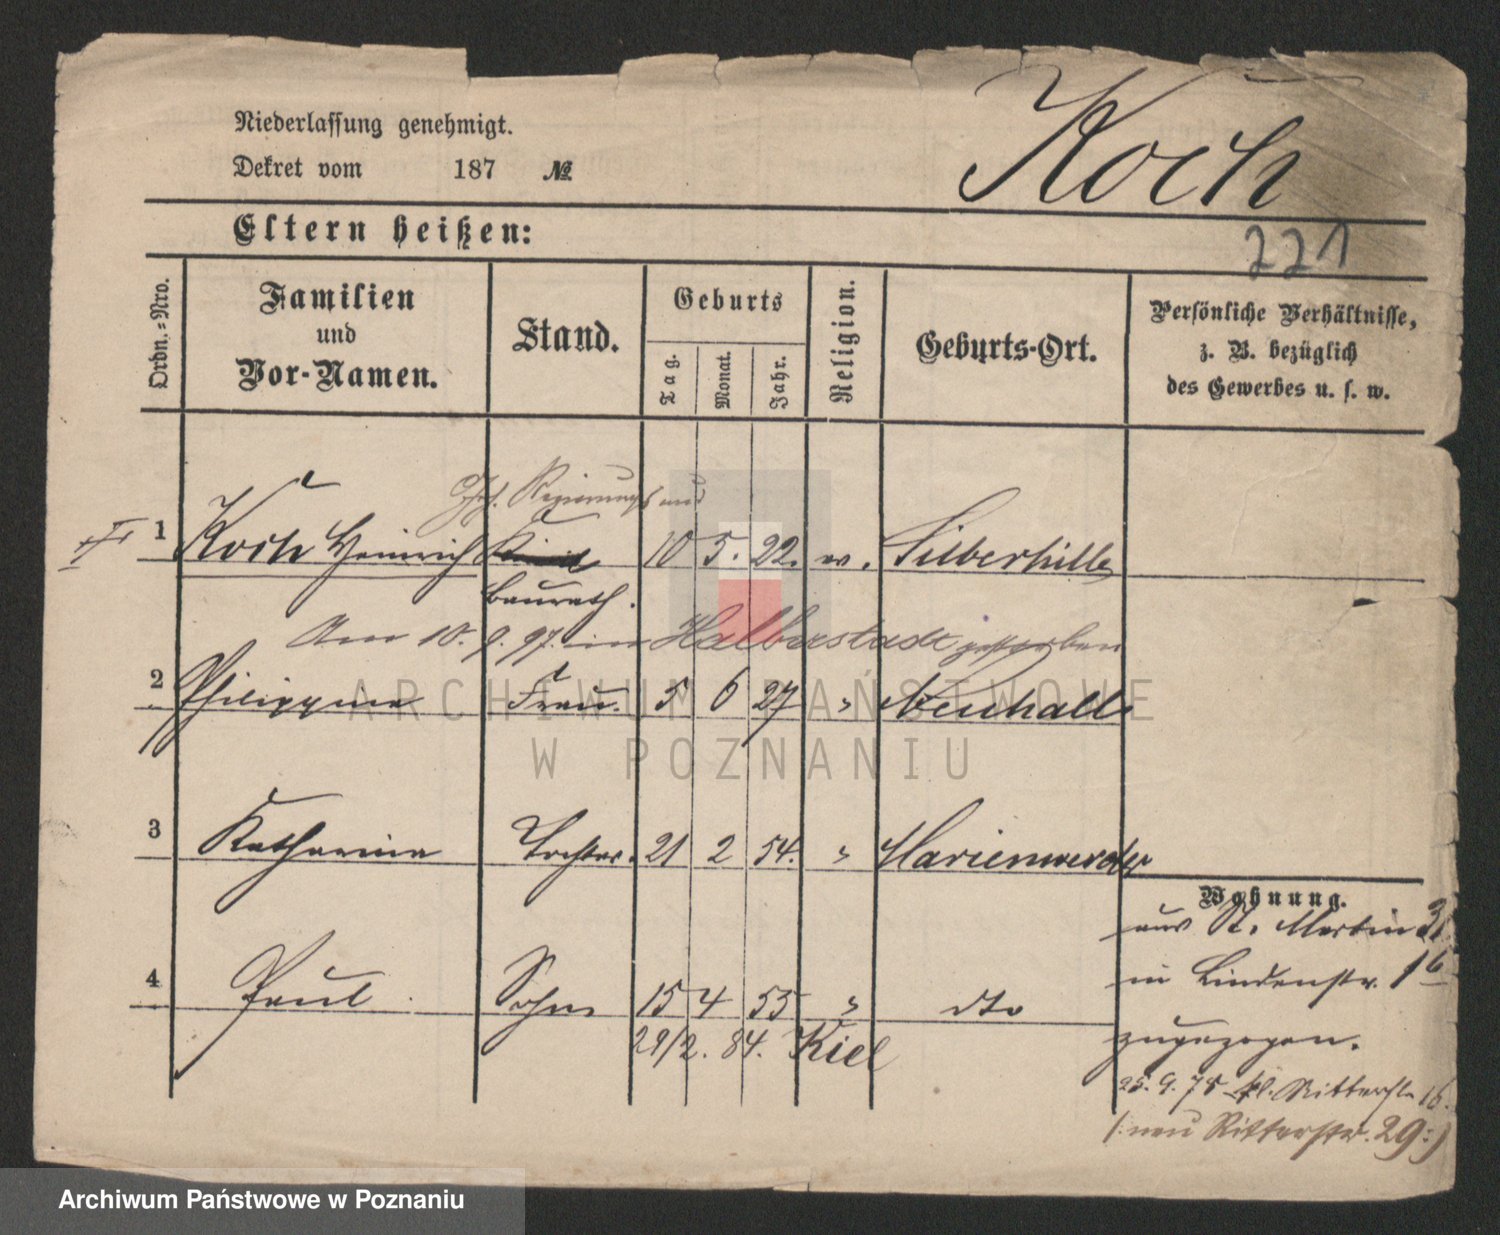 Niederlassung genehmigt.
Koch
Dekret vom 187 №
Eltern heißen:
221
Ordn.=Nro.
Familien
und
Vor-Namen.
Stand.
Geburts
Tag.
Monat.
Jahr.
Religion.
Geburts-Ort.
Persönliche Verhältnisse,
z. B. bezüglich
des Gewerbes u. s. w.
Geh. Regierungs und
1 Koch Heinrich 10 5. 22. ev. Silberhütte
Baurath.
Am 10. 9. 97. in Halberstadt gestorben
2 Philippine Frau. 5 6 27 " Neuhall
ARCHIWUM PAŃSTWOWE
W POZNANIU
3 Katharina Tochter. 21 2 54. " Marienwerder
Wohnung.
aus St. Martin 31
in Lindenstr. 1b
4 Paul Sohn 15 4 55 " dto
zugezogen.
29/2. 84. Kiel
25. 9. 75 kl. Ritterstr. 16.
(: neu Ritterstr. 29 :)
Archiwum Państwowe w Poznaniu